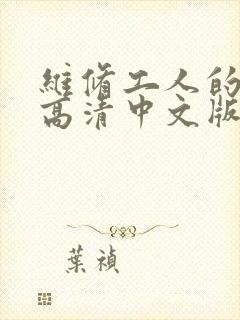 維修工人的
高清中文版
葉禎